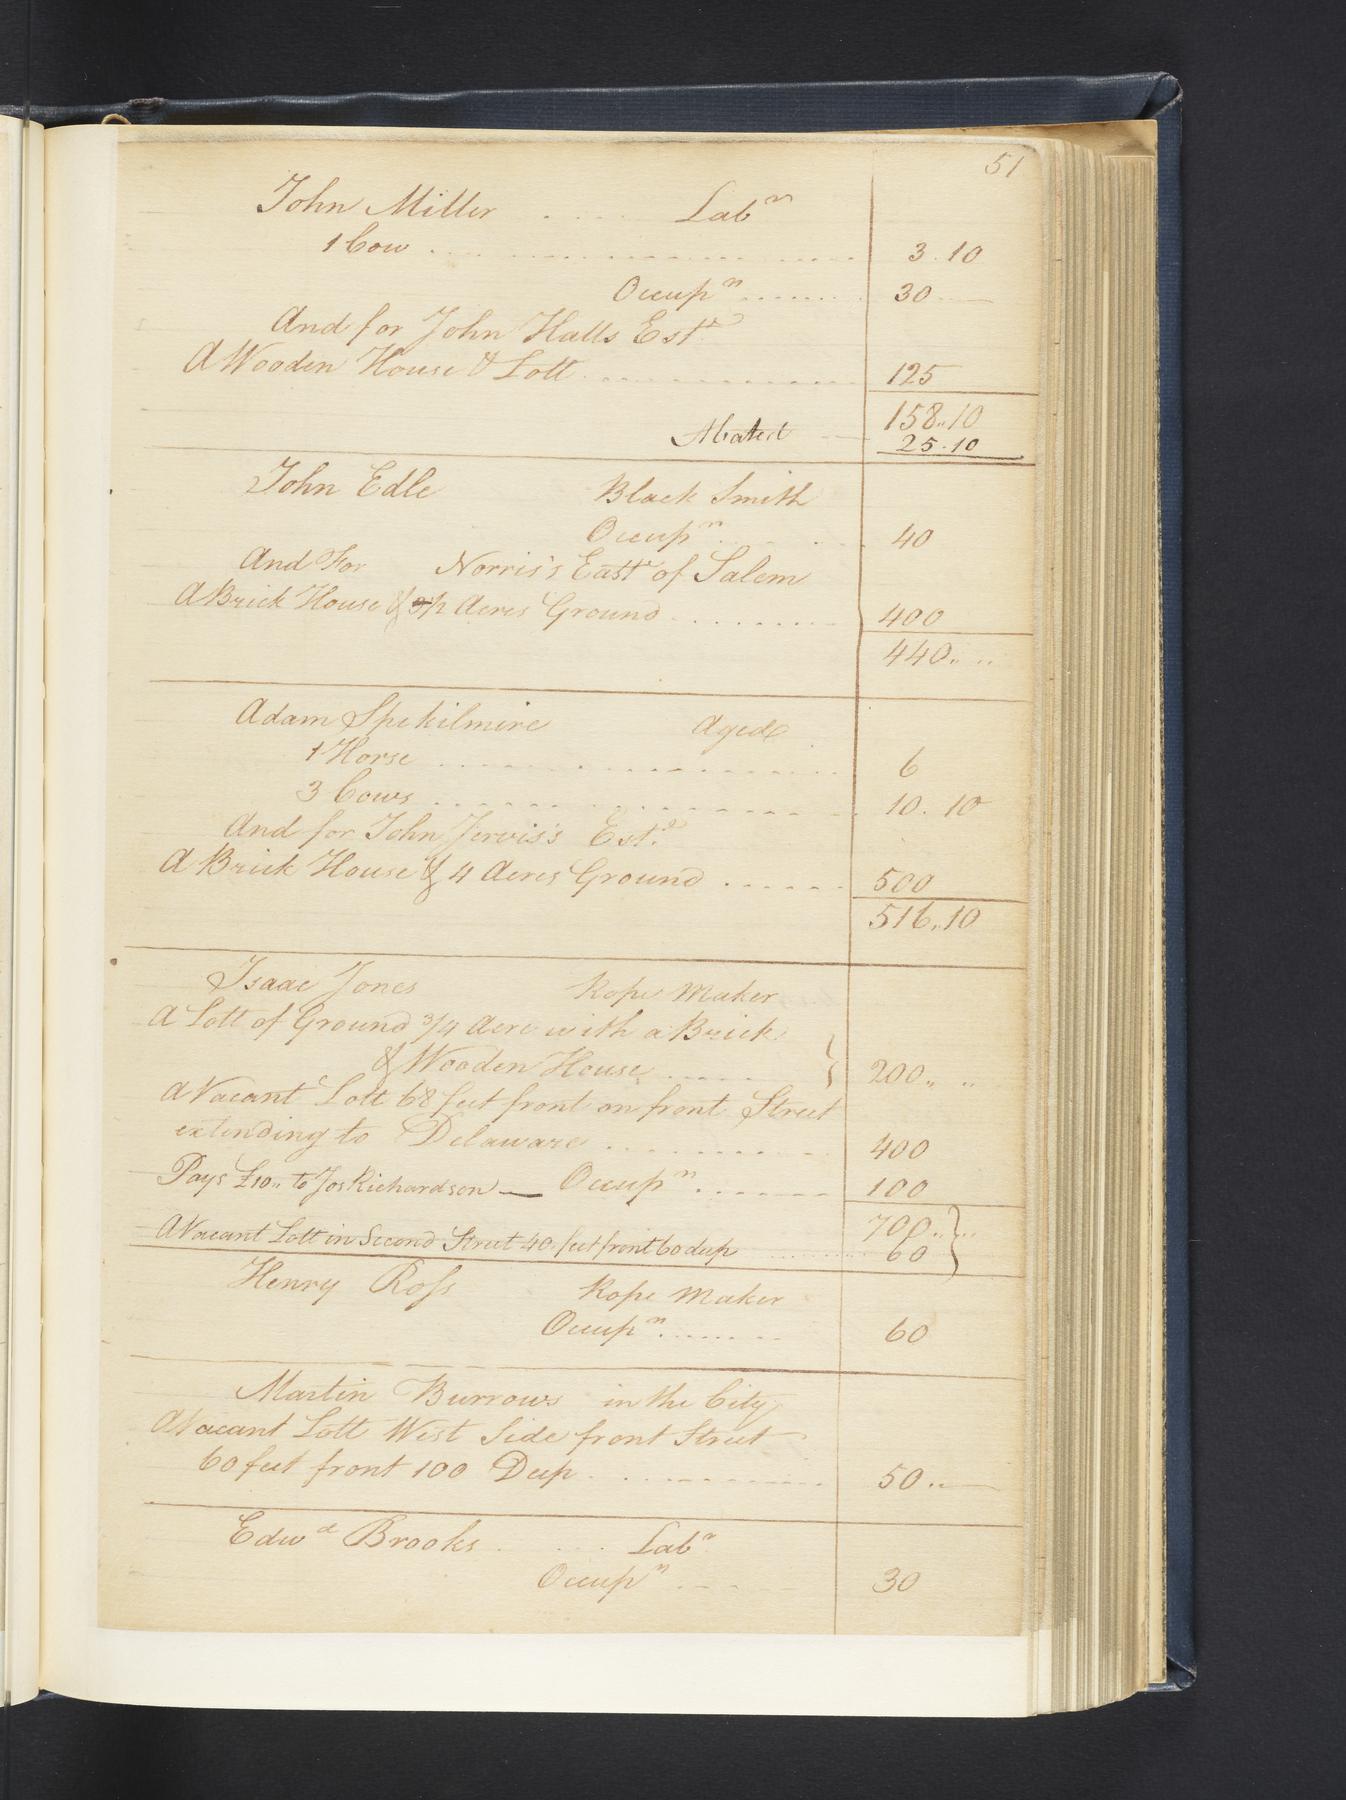 51
John Miller .... Labr
1 Cow ........ 3.10
Occupn ....... 30
And for John Halls Este
A Wooden House & Lott ........ 125
158..10
Abated 25.10
John Edle Black Smith
Occupn .... 40
And For Norris's Easte of Salem
A Brick House & Acres Ground ......... 400
440.. ..
Adam Spikilmire Aged
1 Horse ........ 6
3 Cows ........ 10.10
And for John Jervis's Este
A Brick House & 4 Acres Ground ...... 500
516..10
Isaac Jones Rope Maker
A Lott of Ground 3/4 Acre with a Brick
& Wooden House ..... } 200.. ..
A Vacant Lott 68 feet front on front Street
extending to Delaware ........ 400
Pays £10.. to Jos Richardson — Occupn ....... 100
700.. ..
A Vacant Lott in Second Street 40 feet front 60 deep ........ 60 }
Henry Ross Rope Maker
Occupn ....... 60
Martin Burrows in the City
A Vacant Lott West Side front Street
60 feet front 100 Deep ........ 50..
Edwd Brooks .... Labr
Occupn .... 30